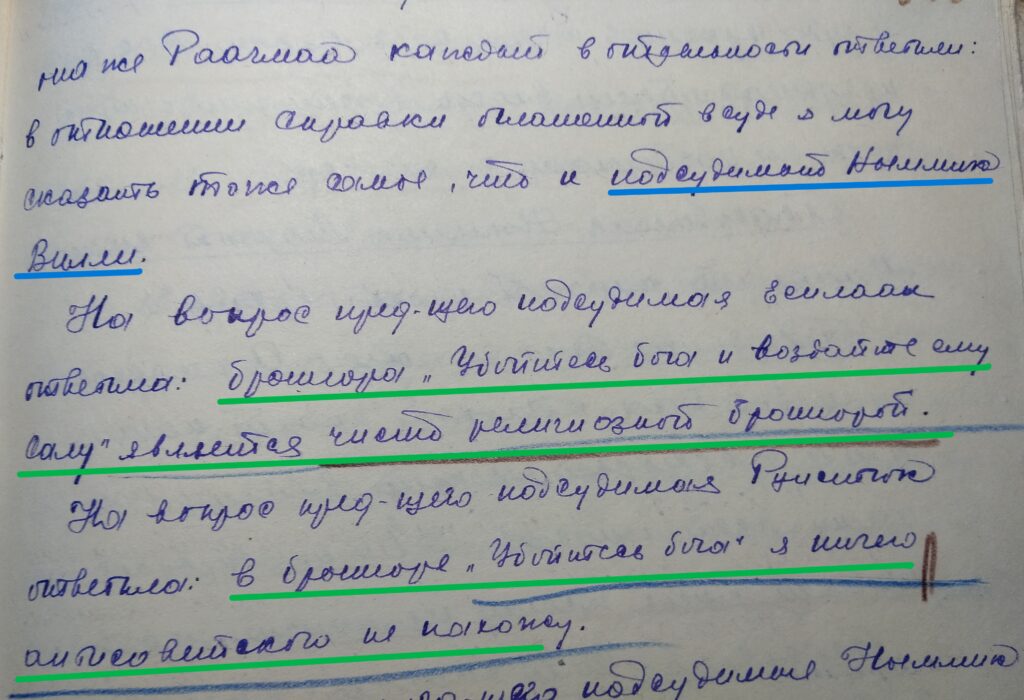 же Раагмаа каждый в отдельности ответили:
в отношении справки оглашенной в суде я могу
сказать тоже самое, что и подсудимый Ныммик
Вилли.
На вопрос пред-щего подсудимая Есилаан
ответила: брошюра „Убойтесь бога и воздайте ему
славу" является чисто религиозной брошюрой.
На вопрос пред-щего подсудимая
ответила: в брошюре „Убойтесь бога" я ничего
антисоветского не нахожу.
подсудимая Ныммик